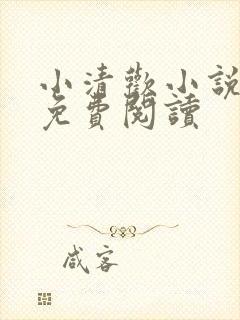 小清歡小說
免費閱讀
咸客